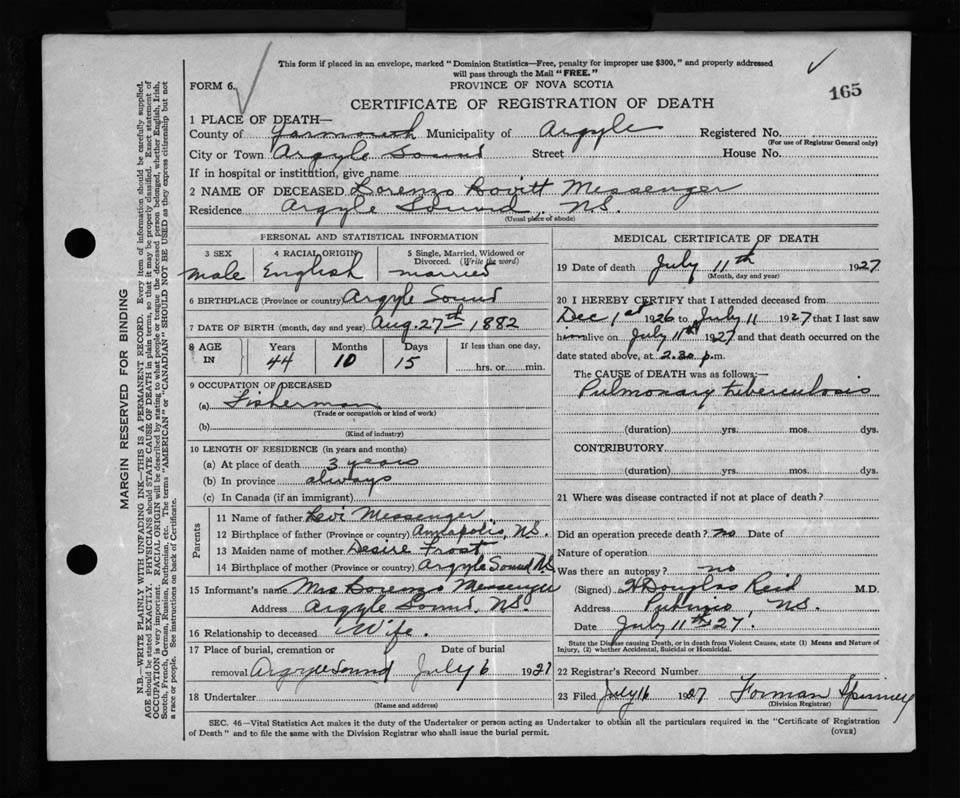 This form if placed in an envelope, marked "Dominion Statistics—Free, penalty for improper use $300," and properly addressed
will pass through the Mail "FREE."
FORM 6.
PROVINCE OF NOVA SCOTIA
165
CERTIFICATE OF REGISTRATION OF DEATH
1 PLACE OF DEATH—
County of Yarmouth Municipality of Argyle Registered No.
(For use of Registrar General only)
City or Town Argyle Sound Street House No.
If in hospital or institution, give name
2 NAME OF DECEASED Lorenzo Lovitt Messenger
Residence Argyle Sound, N.S.
(Usual place of abode)
PERSONAL AND STATISTICAL INFORMATION
3 SEX 4 RACIAL ORIGIN 5 Single, Married, Widowed or
Divorced. (Write the word)
male English married
6 BIRTHPLACE (Province or country) Argyle Sound
7 DATE OF BIRTH (month, day and year) Aug. 27th 1882
8 AGE IN Years Months Days If less than one day,
44 10 15 hrs. or min.
9 OCCUPATION OF DECEASED
(a) Fisherman
(Trade or occupation or kind of work)
(b)
(Kind of industry)
10 LENGTH OF RESIDENCE (in years and months)
(a) At place of death 3 years
(b) In province always
(c) In Canada (if an immigrant)
Parents
11 Name of father Levi Messenger
12 Birthplace of father (Province or country) Annapolis, N.S.
13 Maiden name of mother Desire Frost
14 Birthplace of mother (Province or country) Argyle Sound N.S.
15 Informant's name Mrs Lorenzo Messenger
Address Argyle Sound, N.S.
16 Relationship to deceased Wife.
17 Place of burial, cremation or Date of burial
removal Argyle Sound July 6 1927
18 Undertaker
(Name and address)
MEDICAL CERTIFICATE OF DEATH
19 Date of death July 11th 1927
(Month, day and year)
20 I HEREBY CERTIFY that I attended deceased from
Dec 1st 1926 to July 11 1927 that I last saw
him alive on July 11th 1927 and that death occurred on the
date stated above, at 2.30 p.m.
The CAUSE of DEATH was as follows:—
Pulmonary tuberculosis
(duration) yrs. mos. dys.
CONTRIBUTORY
(duration) yrs. mos. dys.
21 Where was disease contracted if not at place of death?
Did an operation precede death? no Date of
Nature of operation
Was there an autopsy? no
(Signed) Douglas Reid M.D.
Address Pubnico, N.S.
Date July 11th 27.
State the Disease causing Death, or in death from Violent Causes, state (1) Means and Nature of
Injury, (2) whether Accidental, Suicidal or Homicidal.
22 Registrar's Record Number
23 Filed July 16 1927 Forman Spinney
(Division Registrar)
SEC. 46—Vital Statistics Act makes it the duty of the Undertaker or person acting as Undertaker to obtain all the particulars required in the "Certificate of Registration
of Death" and to file the same with the Division Registrar who shall issue the burial permit.
(OVER)
MARGIN RESERVED FOR BINDING
N.B.—WRITE PLAINLY WITH UNFADING INK—THIS IS A PERMANENT RECORD. Every item of information should be carefully supplied.
AGE should be stated EXACTLY. PHYSICIANS should STATE CAUSE OF DEATH in plain terms, so that it may be properly classified. Exact statement of
OCCUPATION is very important. RACIAL ORIGIN will be described by stating to what people or tongue the deceased person belonged, whether English, Irish,
Scotch, French, German, Russian, Ruthenian, etc. The terms "AMERICAN" or "CANADIAN" SHOULD NOT BE USED as they express citizenship but not
a race or people. See instructions on back of Certificate.